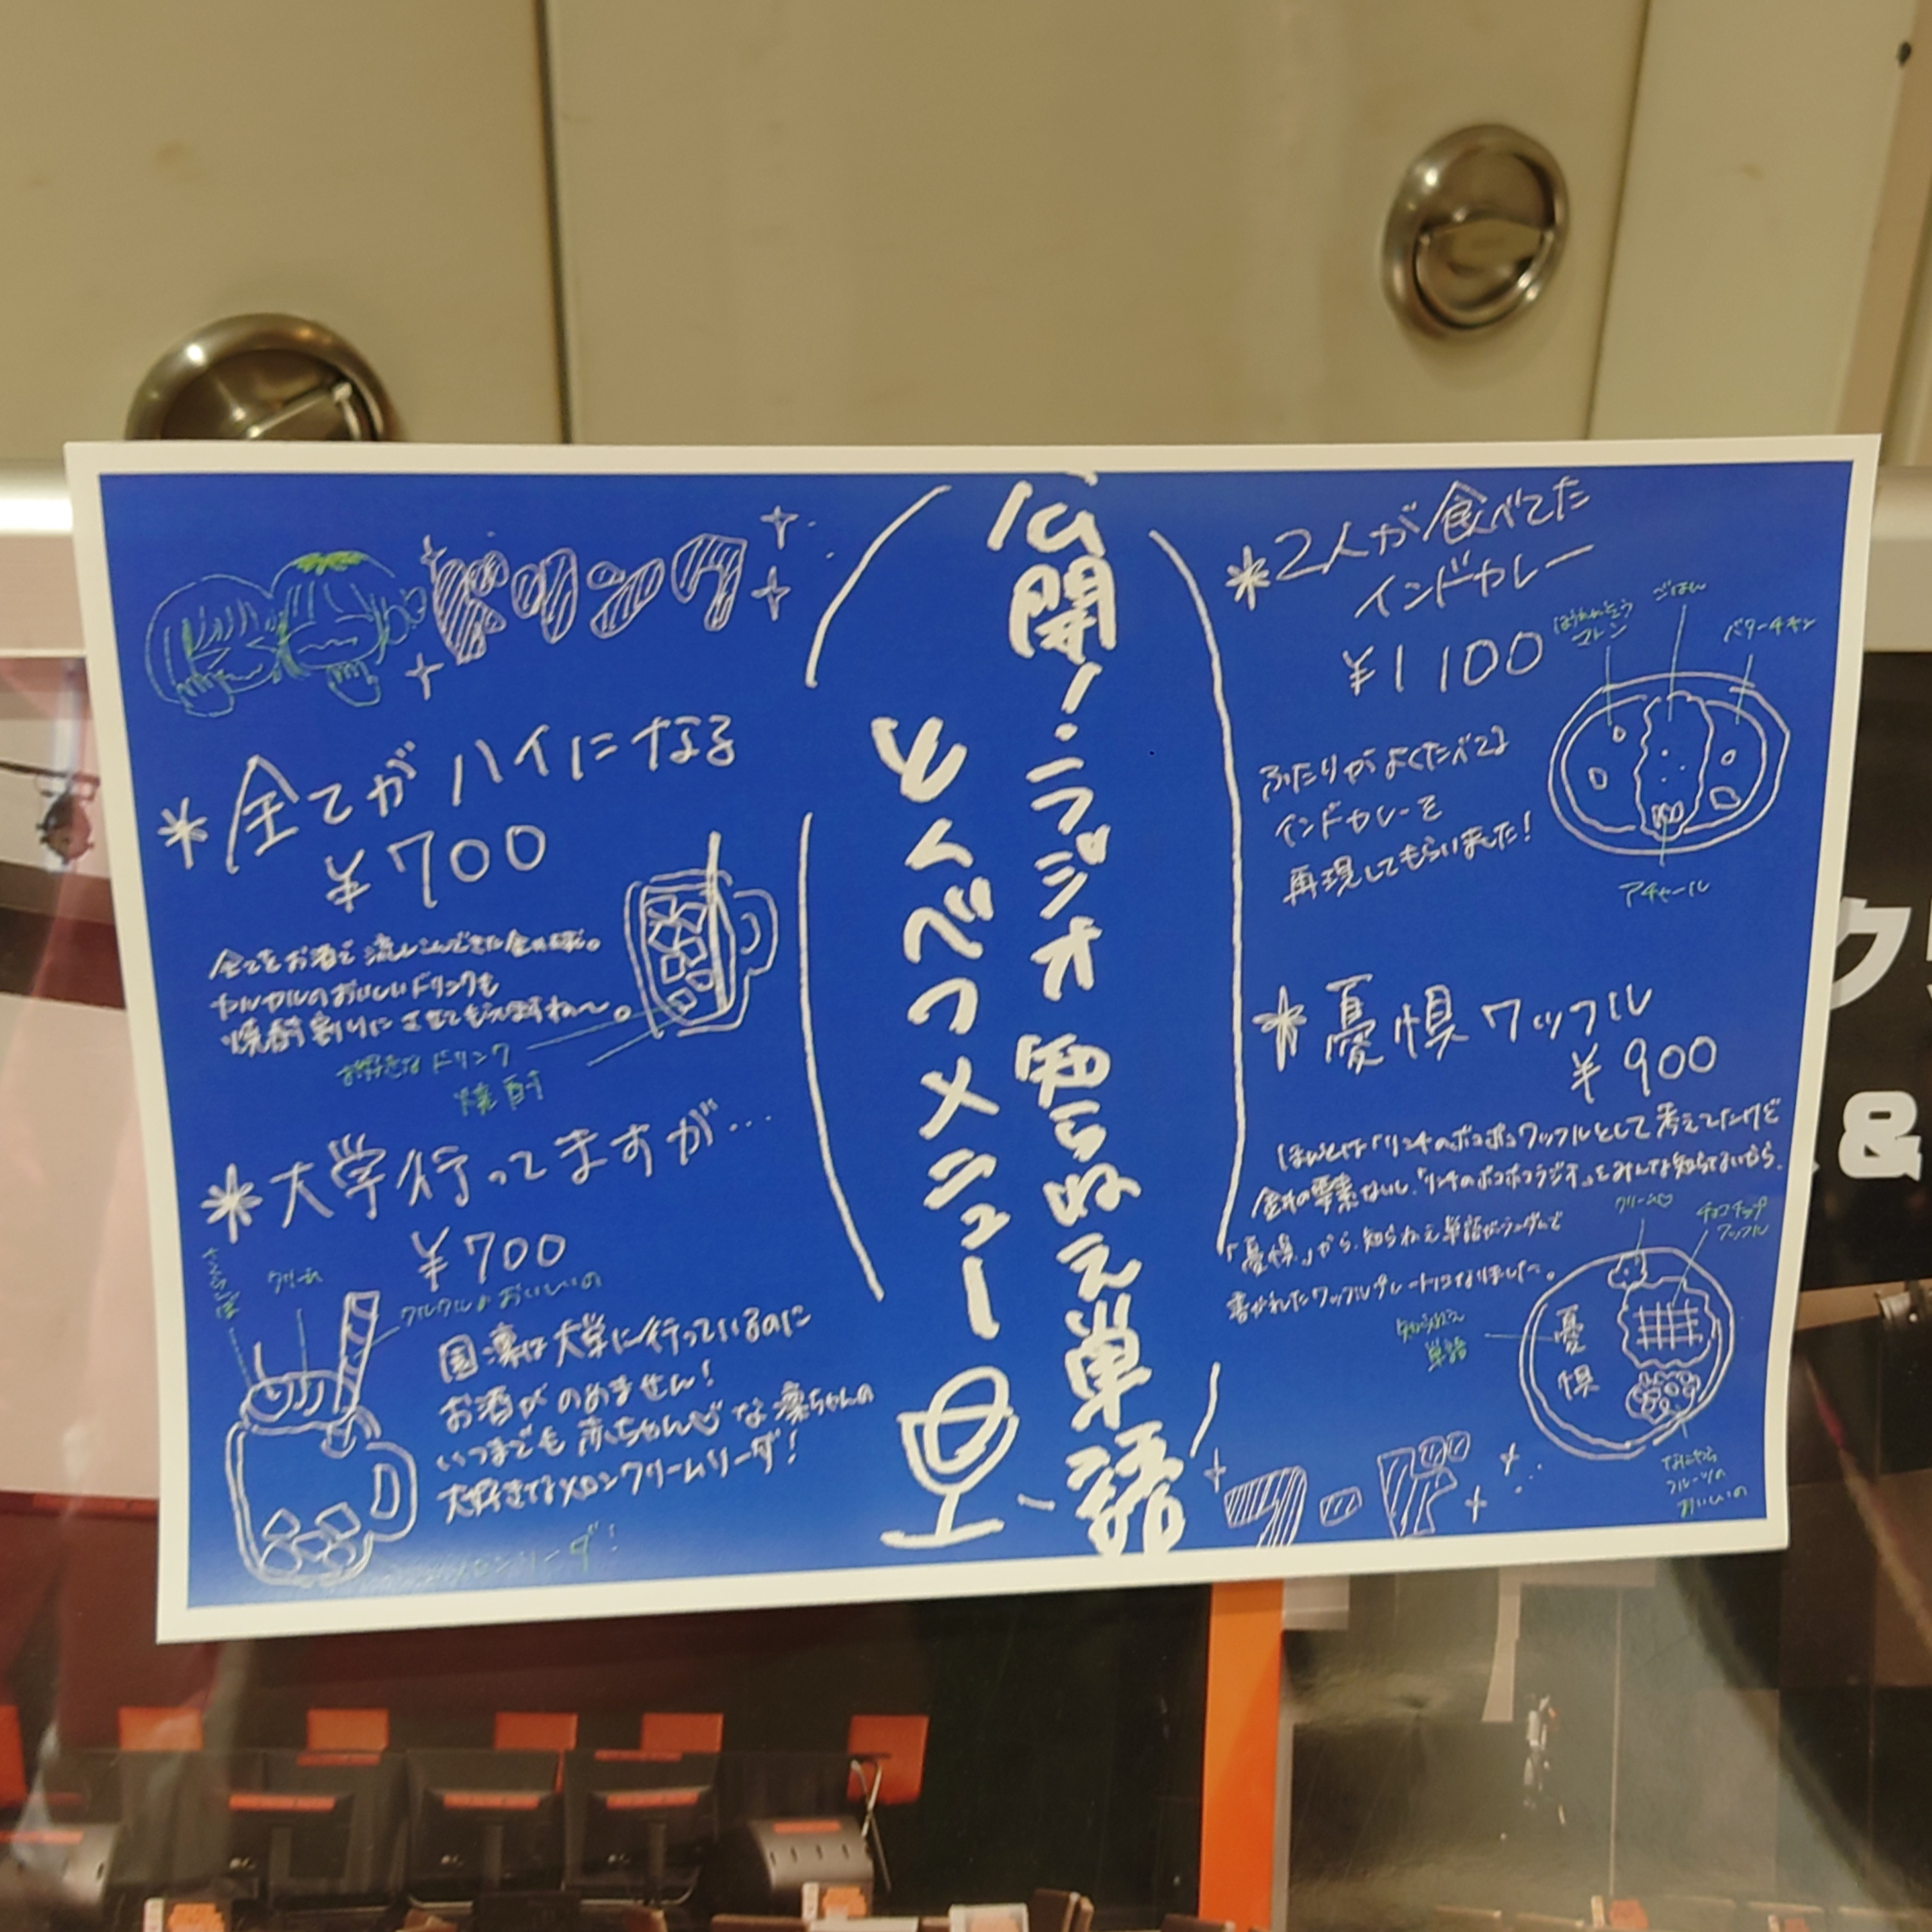 公開!ラジオ 知らねえ単語
とくべつメニュー
*2人が食べてた
インドカレー
¥1100
ほうれんそう
マトン
ごはん
バターチキン
アチャール
ふたりがよくたべてる
インドカレーを
再現してもらいました!
*憂惧ワッフル
¥900
ほんとは「リンチのポコポコワッフル」として考えてたけど
要素ないし、「リンチのポコポコラジオ」をみんな知らないから、
「憂惧」から、知らねえ単語がランダムで
書かれたワッフルプレートになりました。
クリーム♡
チョコチップ
ワッフル
知らねえ
単語
憂
惧
フルーツの
おいしいの
フード
ドリンク
*全てがハイになる
¥700
全てをお酒で流しこんできた
おいしいドリンクも
焼酎割りにさせてもらえますね〜。
お好きなドリンク
焼酎
*大学行ってますが…
¥700
クリーム
クルクルのおいしいの
国凛は大学に行っているのに
お酒がのめません!
いつまでも赤ちゃん♡な凛ちゃんの
大好きなメロンクリームソーダ!
メロンソーダ!
ク
&